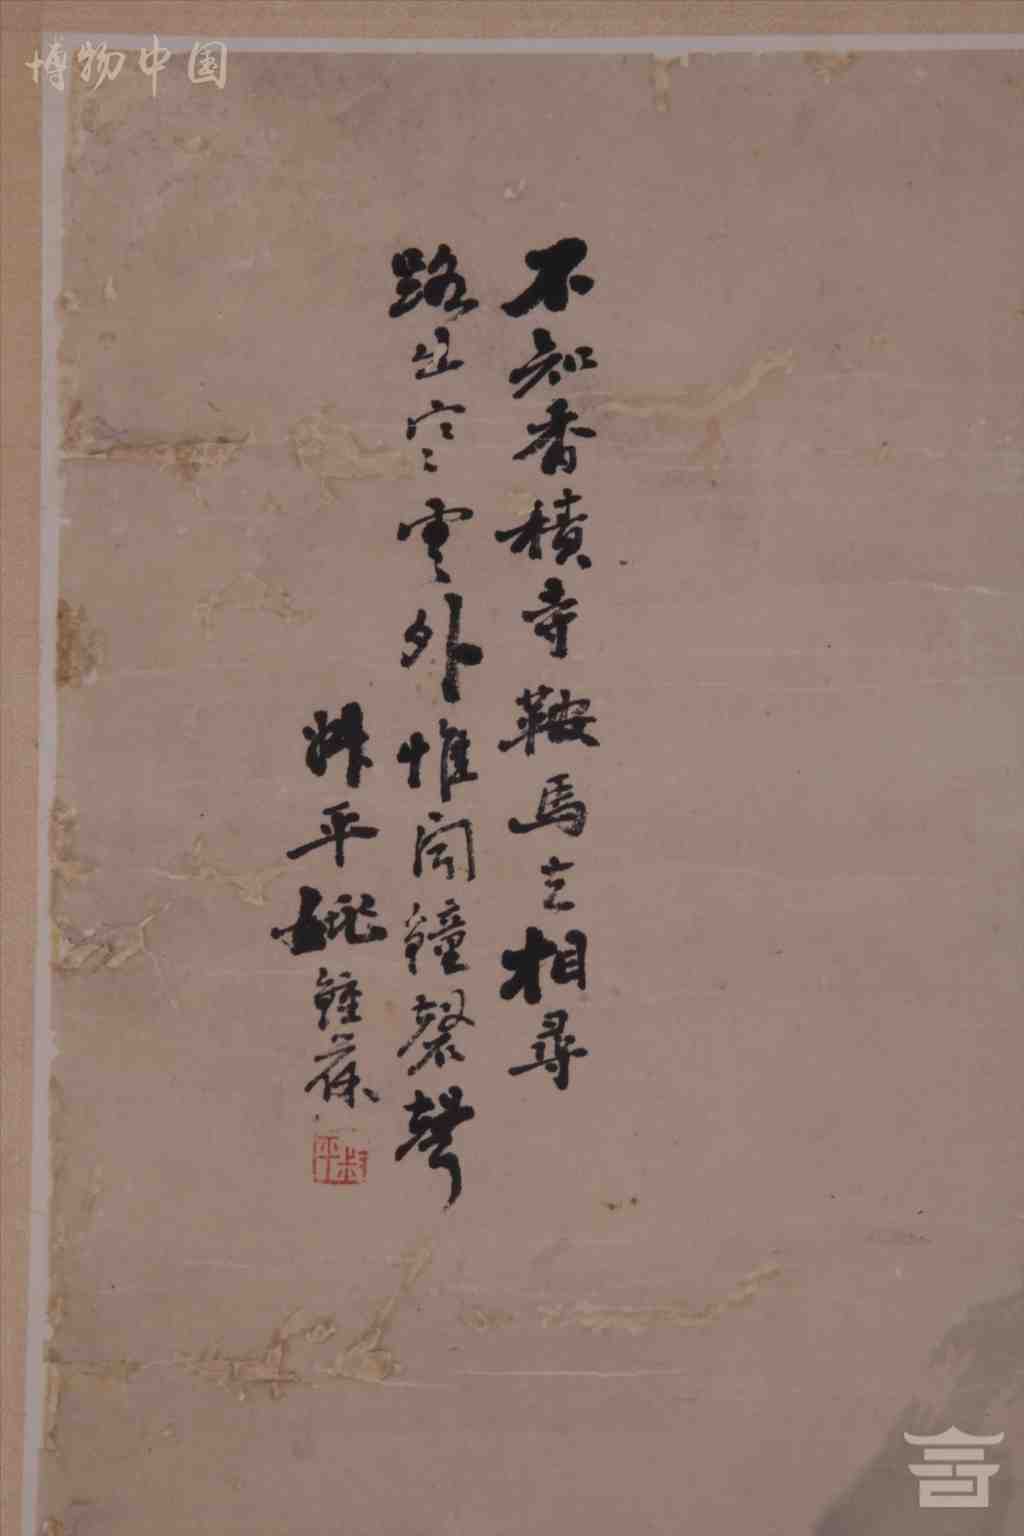 博物中国
不知香積寺鞍馬立相尋
路出寒雲外惟聞鐘磬聲
叔平姚鍾葆
叔平